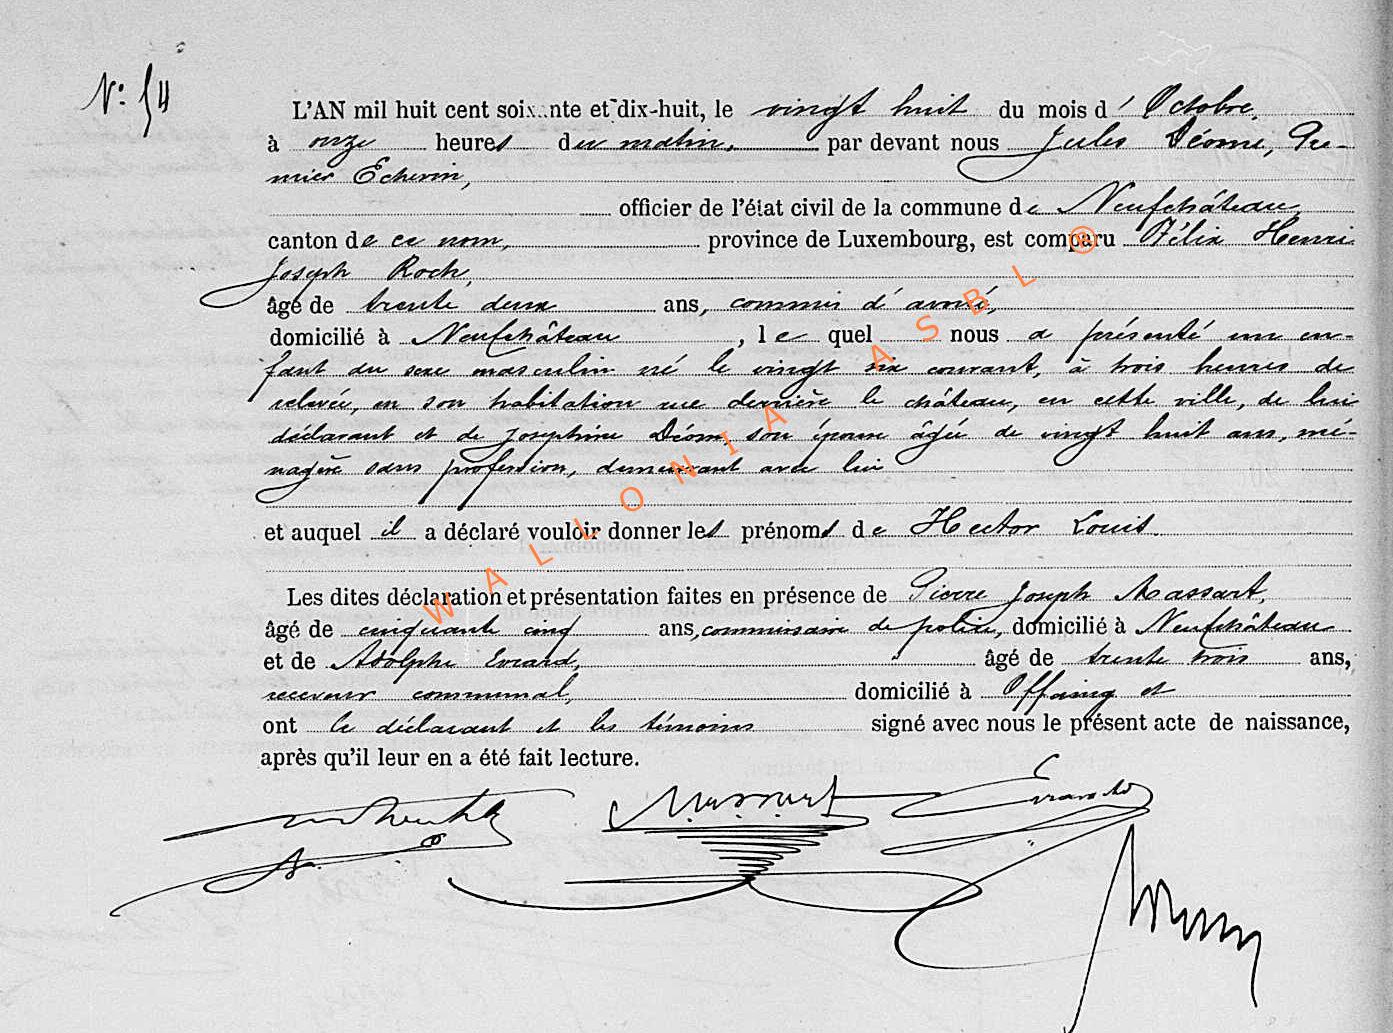 N° 54
L'AN mil huit cent soixante et dix-huit, le vingt huit du mois d' Octobre,
à onze heures du matin, par devant nous Jules Déome, Pre-
mier Echevin,
officier de l'état civil de la commune de Neufchâteau,
canton de ce nom, province de Luxembourg, est comparu Félix Henri
Joseph Roch,
âgé de trente deux ans, commis d'avoué,
domicilié à Neufchâteau, le quel nous a présenté un en-
fant du sexe masculin né le vingt six courant, à trois heures de
relevée, en son habitation rue derrière le château, en cette ville, de lui
déclarant et de Joséphine Déom, son épouse âgée de vingt huit ans, mé-
nagère sans profession, demeurant avec lui
et auquel il a déclaré vouloir donner les prénoms de Hector Louis.
Les dites déclaration et présentation faites en présence de Pierre Joseph Massart,
âgé de cinquante cinq ans, commissaire de police, domicilié à Neufchâteau
et de Adolphe Evrard, âgé de trente trois ans,
receveur communal, domicilié à Offaing et
ont le déclarant et les témoins signé avec nous le présent acte de naissance,
après qu'il leur en a été fait lecture.
Massart Evrard
WALLONIA ASBL ®